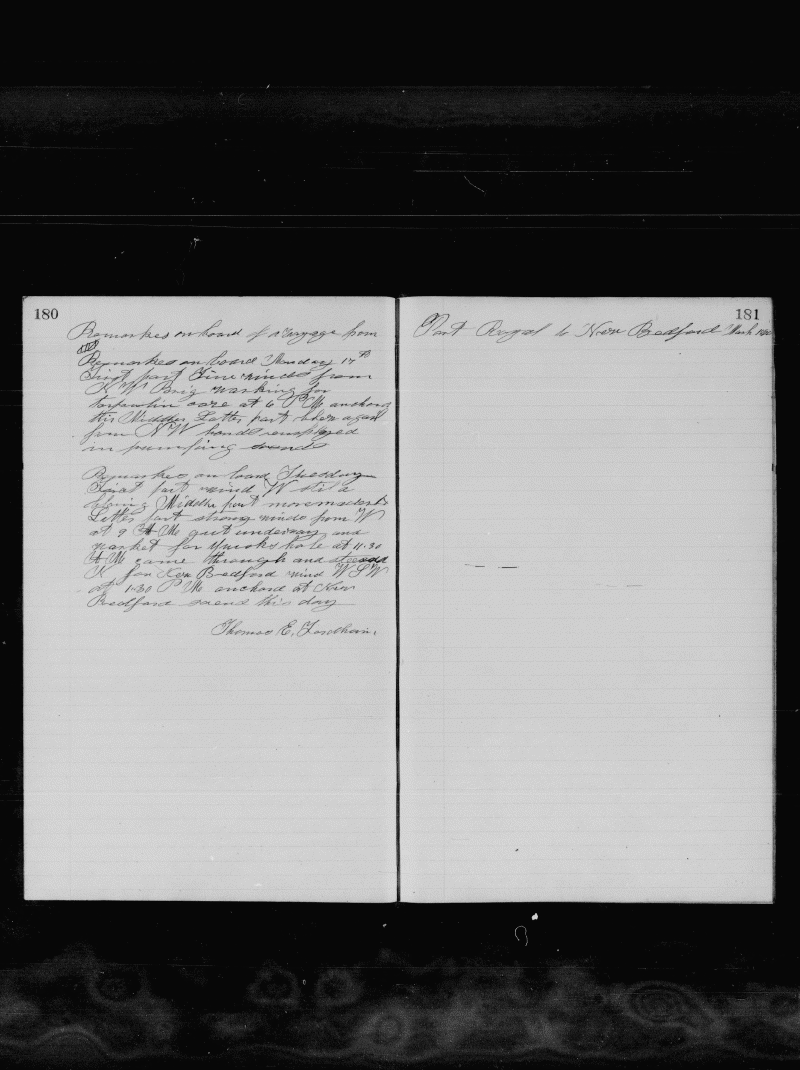 180
Remarkes on board of a voyage from
Remarkes on board Monday 17th
First part Fine winds from
N W Brig working for
tarpaulin cove at 6 P M anchord
this Middle Latter part blew a gail
from N W hands employed
in pumping
Remarkes on board Tuesday
First part wind W still
blowing Middle part more moderate
Latter part strong winds from W
at 9 A M got underway and
for hole at 11.30
A M came through and steard
N for New Bedford wind W S W
at 1.30 P M anchord at New
Bedford so ends this day
Thomas E. Fordham.
181
Port Royal to New Bedford March